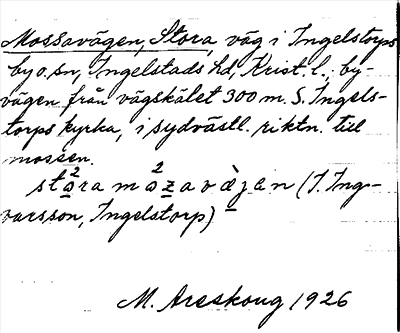 Mossavägen, Stora, väg i Ingelstorps
by o. sn, Ingelstads hd, Krist. l.; by-
vägen från vägskälet 300 m. S. Ingels-
torps kyrka, i sydvästl. riktn. till
mossen.
stω²ra mω²zavὰjen (J. Ing-
varsson, Ingelstorp)
M. Areskoug 1926